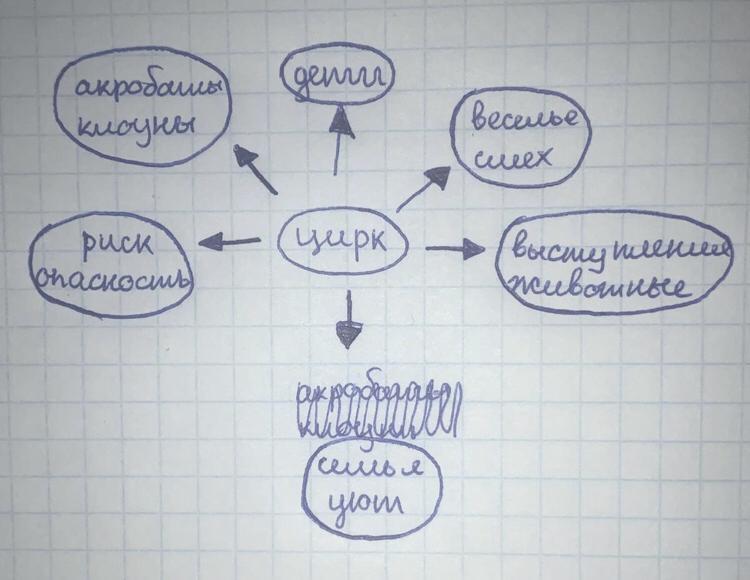 акробаты
клоуны
дети
веселье
смех
риск
опасность
цирк
выступления
животные
акробаты
клоуны
семья
уют